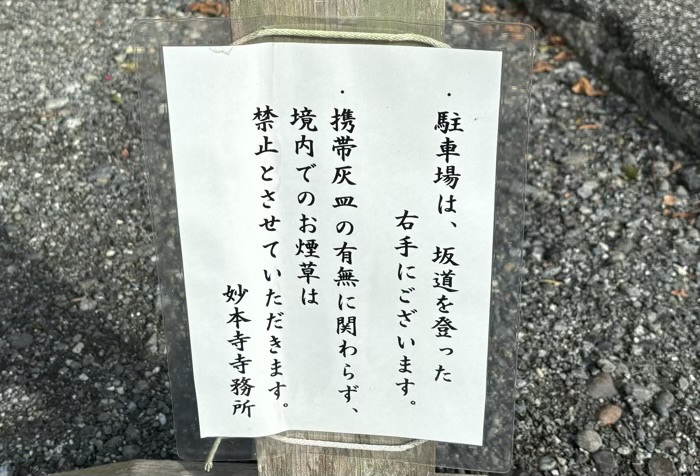 ・駐車場は、坂道を登った
右手にございます。
・携帯灰皿の有無に関わらず、
境内でのお煙草は
禁止とさせていただきます。
妙本寺寺務所